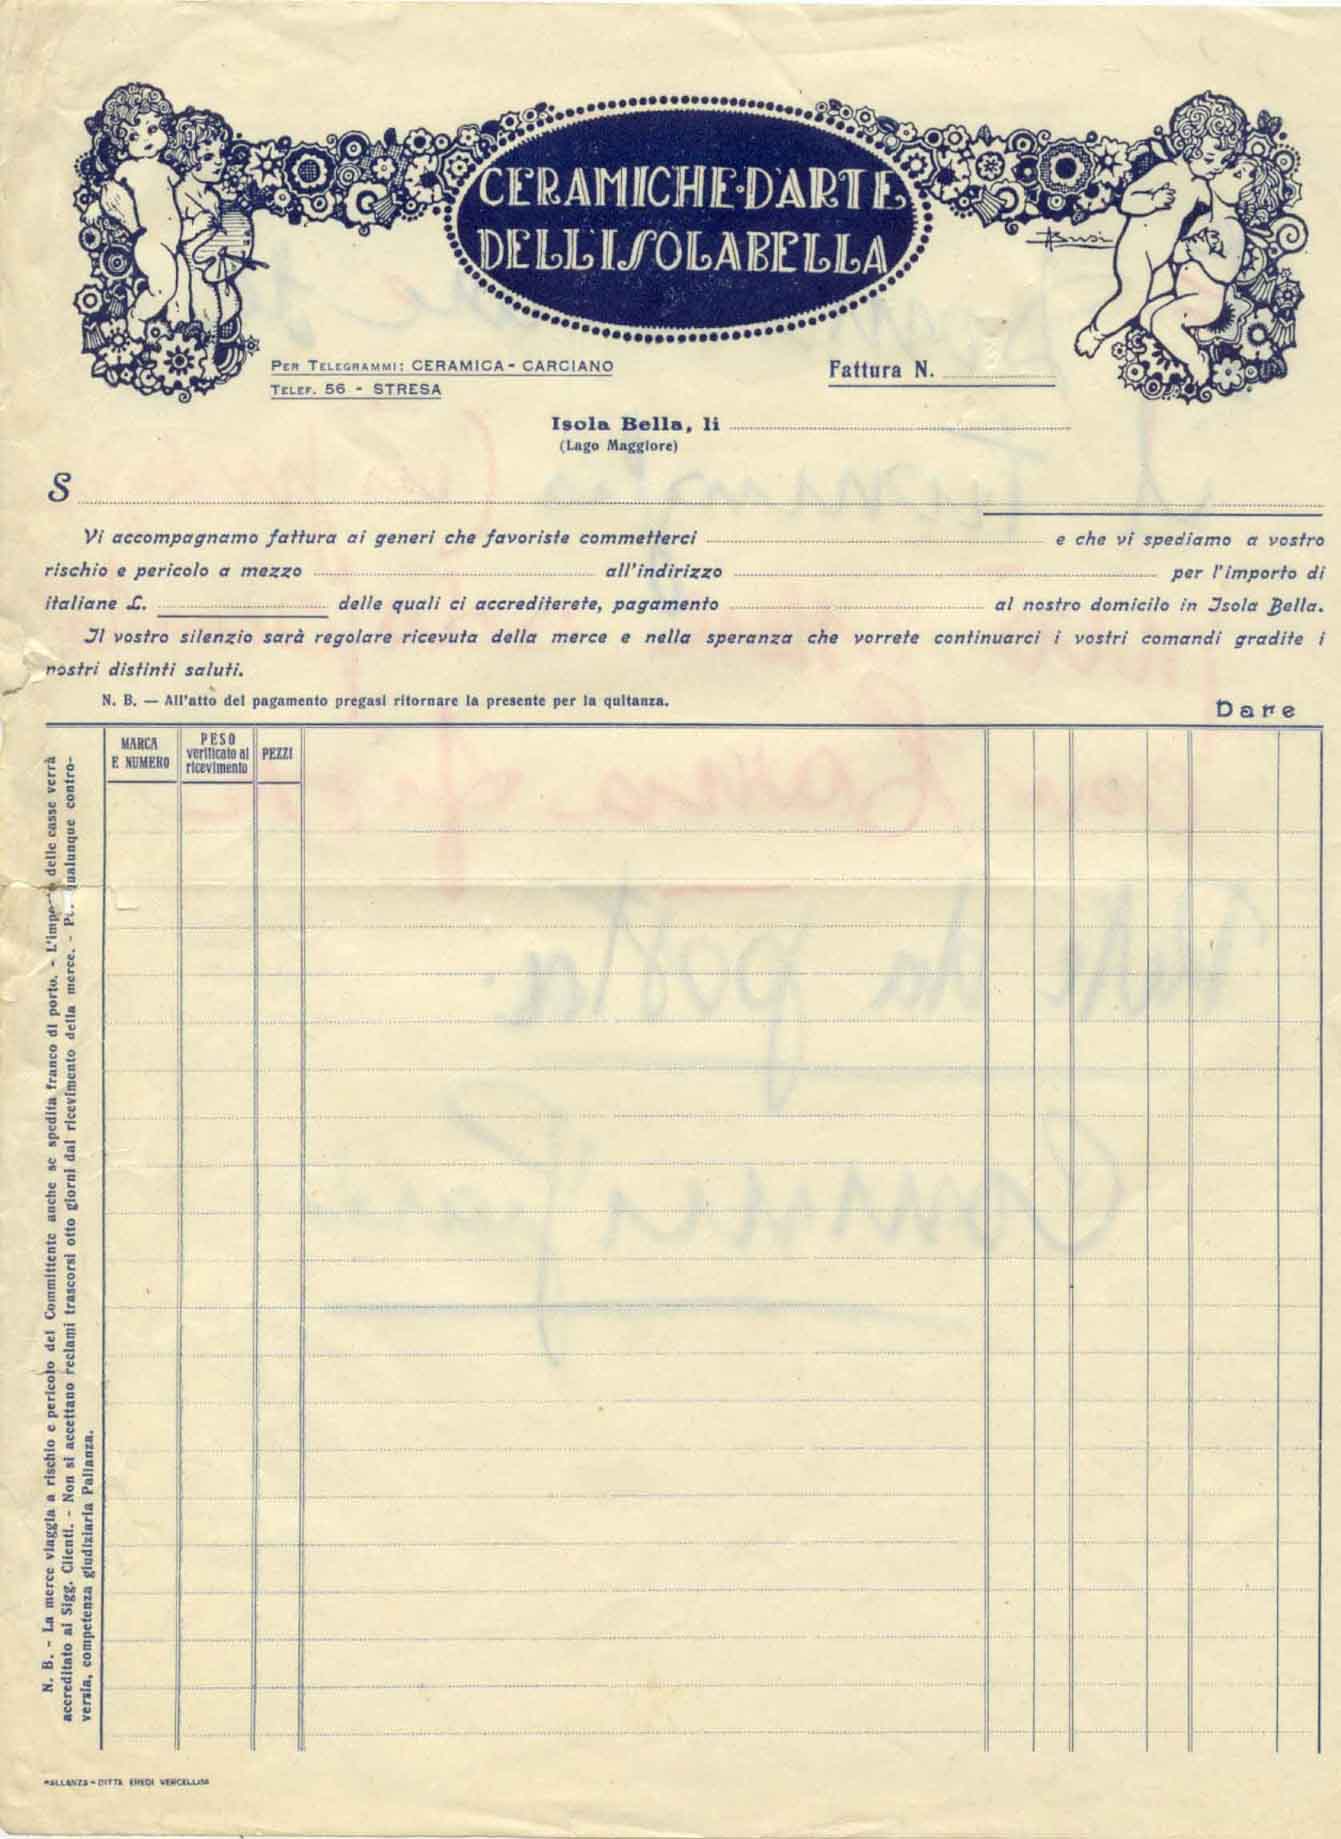 CERAMICHE·D'ARTE
DELL'ISOLABELLA
ABusi
PER TELEGRAMMI: CERAMICA - CARCIANO
TELEF. 56 - STRESA
Fattura N.
Isola Bella, li
(Lago Maggiore)
S
Vi accompagnamo fattura ai generi che favoriste commetterci e che vi spediamo a vostro
rischio e pericolo a mezzo all'indirizzo per l'importo di
italiane L. delle quali ci accrediterete, pagamento al nostro domicilo in Isola Bella.
Il vostro silenzio sarà regolare ricevuta della merce e nella speranza che vorrete continuarci i vostri comandi gradite i
nostri distinti saluti.
N. B. — All'atto del pagamento pregasi ritornare la presente per la quitanza.
Dare
MARCA
E NUMERO
PESO
verificato al
ricevimento
PEZZI
N. B. - La merce viaggia a rischio e pericolo del Committente anche se spedita franco di porto. - L'importo delle casse verrà
accreditato ai Sigg. Clienti. - Non si accettano reclami trascorsi otto giorni dal ricevimento della merce. - qualunque contro-
versia, competenza giudiziaria Pallanza.
PALLANZA - DITTA EREDI VERCELLINI